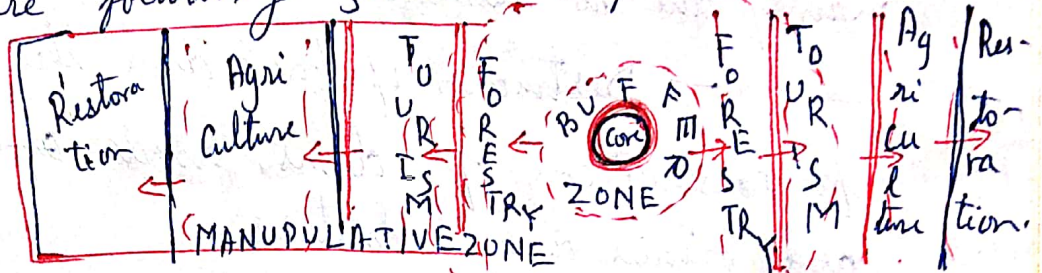 Restora
tion
Agri
Culture
TOURISM
FORESTRY
BUFFER
Core
ZONE
FORESTRY
TOURISM
Ag
ri
cu
l
ture
Res-
to-
ra
tion.
MANUPULATIVE ZONE